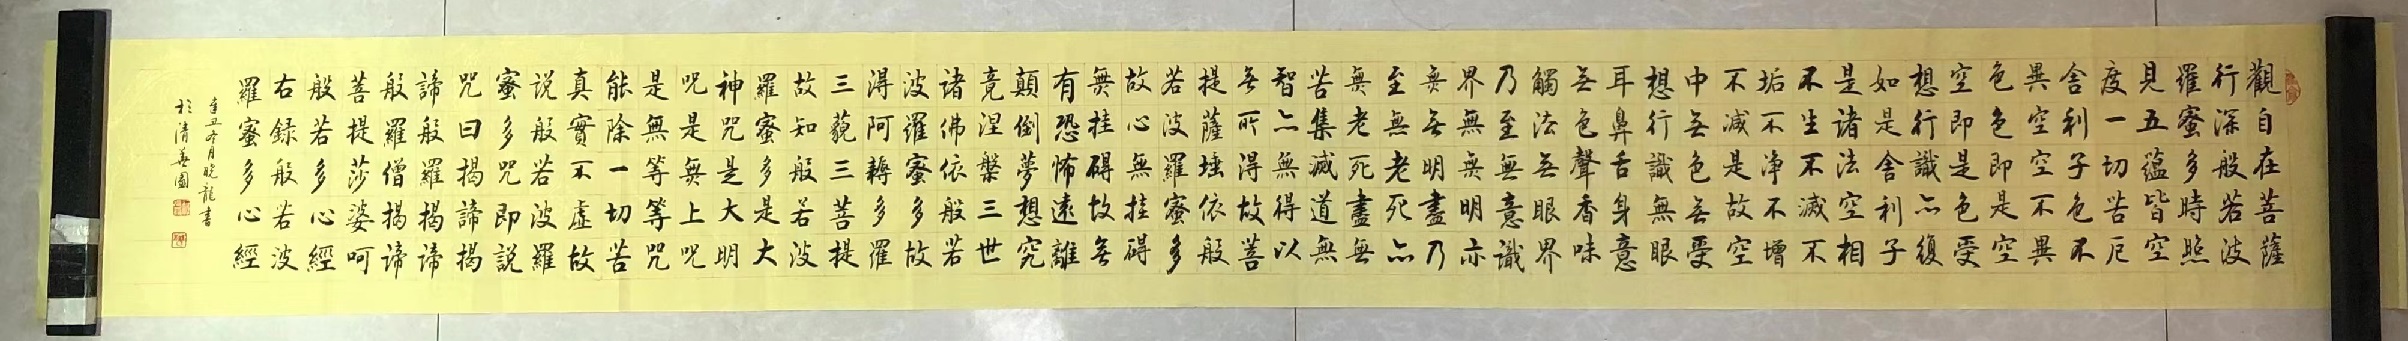 觀自在菩薩
行深般若波
羅蜜多時照
見五蘊皆空
度一切苦厄
舍利子色不
異空空不異
色色即是空
空即是色受
想行識亦復
如是舍利子
是諸法空相
不生不滅不
垢不淨不增
不減是故空
中無色無受
想行識無眼
耳鼻舌身意
無色聲香味
觸法無眼界
乃至無意識
界無無明亦
無無明盡乃
至無老死亦
無老死盡無
苦集滅道無
智亦無得以
無所得故菩
提薩埵依般
若波羅蜜多
故心無挂碍
無挂碍故無
有恐怖遠離
顛倒夢想究
竟涅槃三世
諸佛依般若
波羅蜜多故
得阿耨多羅
三藐三菩提
故知般若波
羅蜜多是大
神咒是大明
咒是無上咒
是無等等咒
能除一切苦
真實不虛故
說般若波羅
蜜多咒即說
咒曰揭諦揭
諦般羅揭諦
般羅僧揭諦
菩提莎婆呵
般若多心經
右録般若波
羅蜜多心經
辛丑冬月曉龍書
於清華園